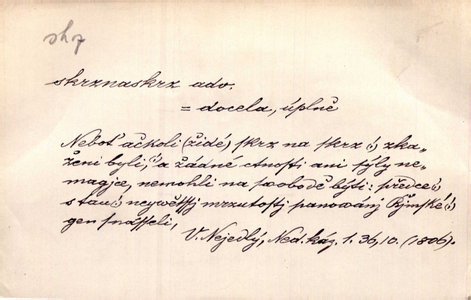 skrznaskrz adv.
= docela, úplně
Neboť ačkoli (židé) skrz na skrz zka-
ženi byli, a žádné ctnosti ani sýly ne-
magjce, nemohli na swobodě býti: předce
s tau neywětssj mrzutostj panowánj Řjmské
gen snásseli,
V. Nejedlý, Ned. káz. 1. 36, 10. (1806).